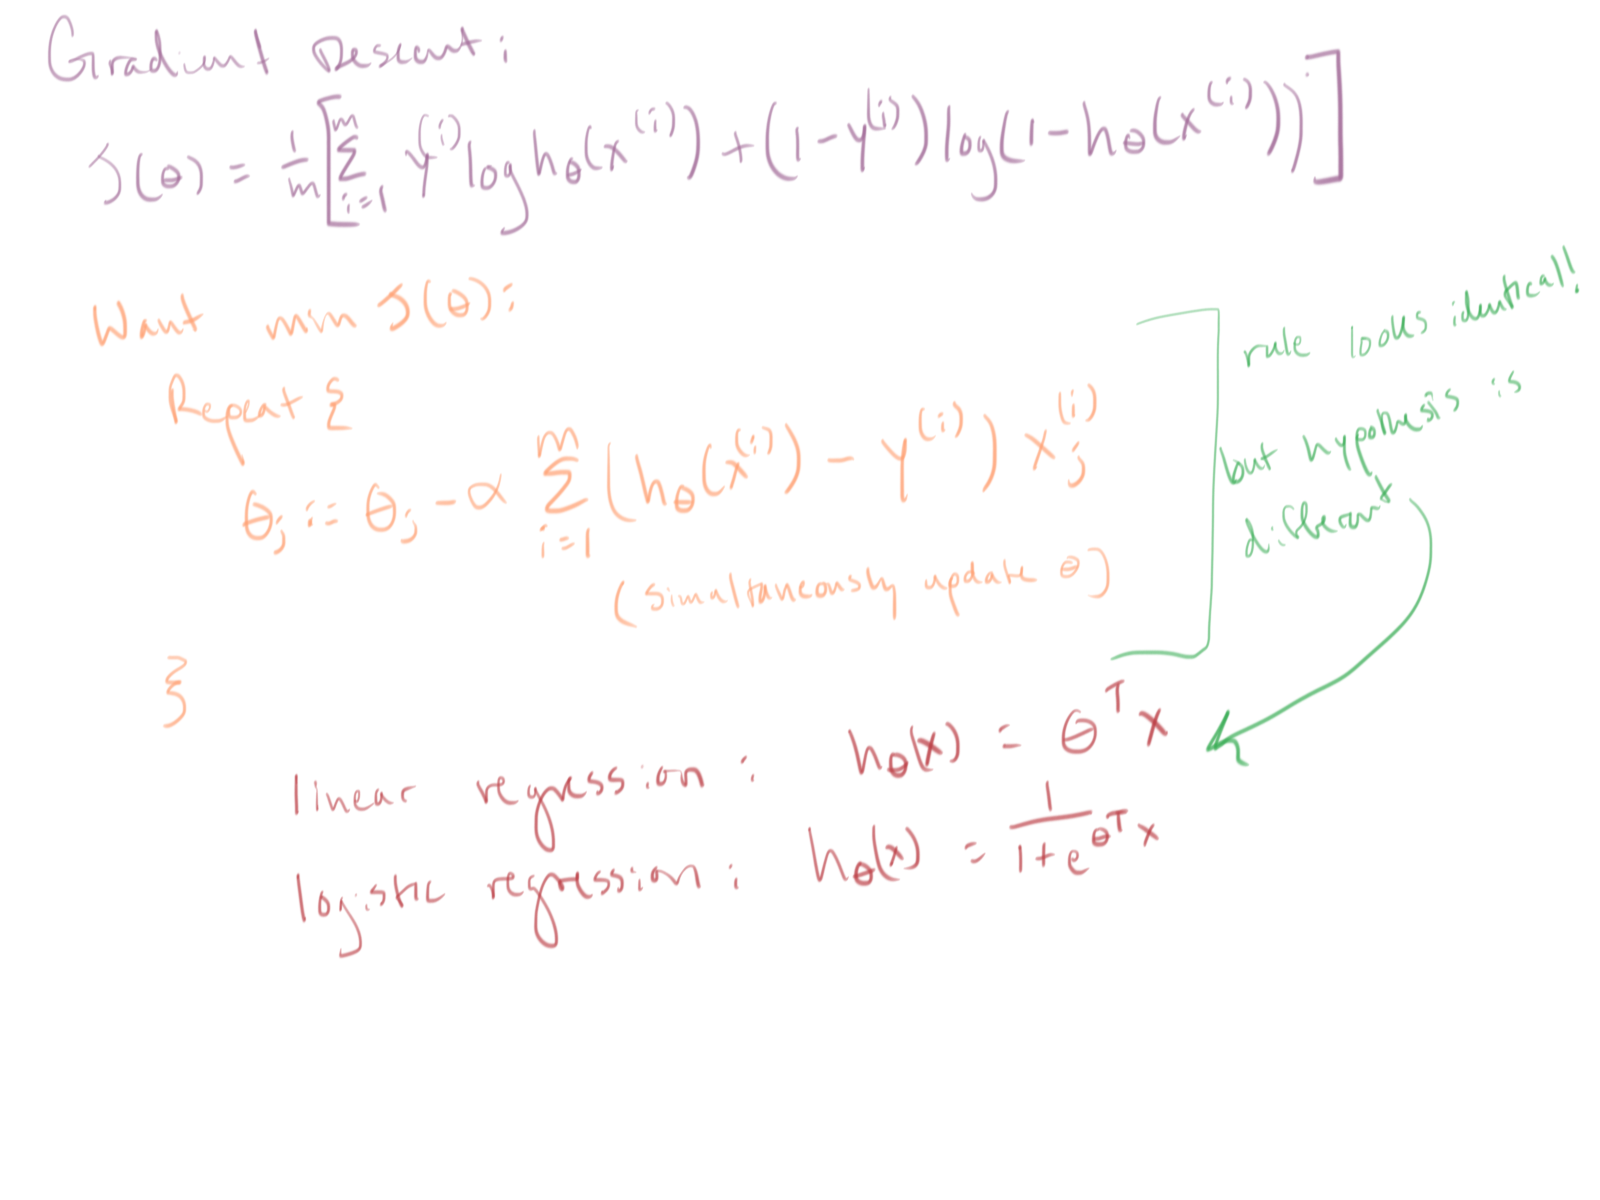 Gradient Descent:
J(θ) = 1/m [ Σ_{i=1}^{m} y^(i) log h_θ(x^(i)) + (1 - y^(i)) log(1 - h_θ(x^(i))) ]
Want min J(θ):
Repeat {
θ_j := θ_j - α Σ_{i=1}^{m} (h_θ(x^(i)) - y^(i)) x_j^(i)
(simultaneously update θ)
}
rule looks identical!
but hypothesis is
different
linear regression: h_θ(x) = θ^T x
logistic regression: h_θ(x) = 1/(1+e^{θ^T x})